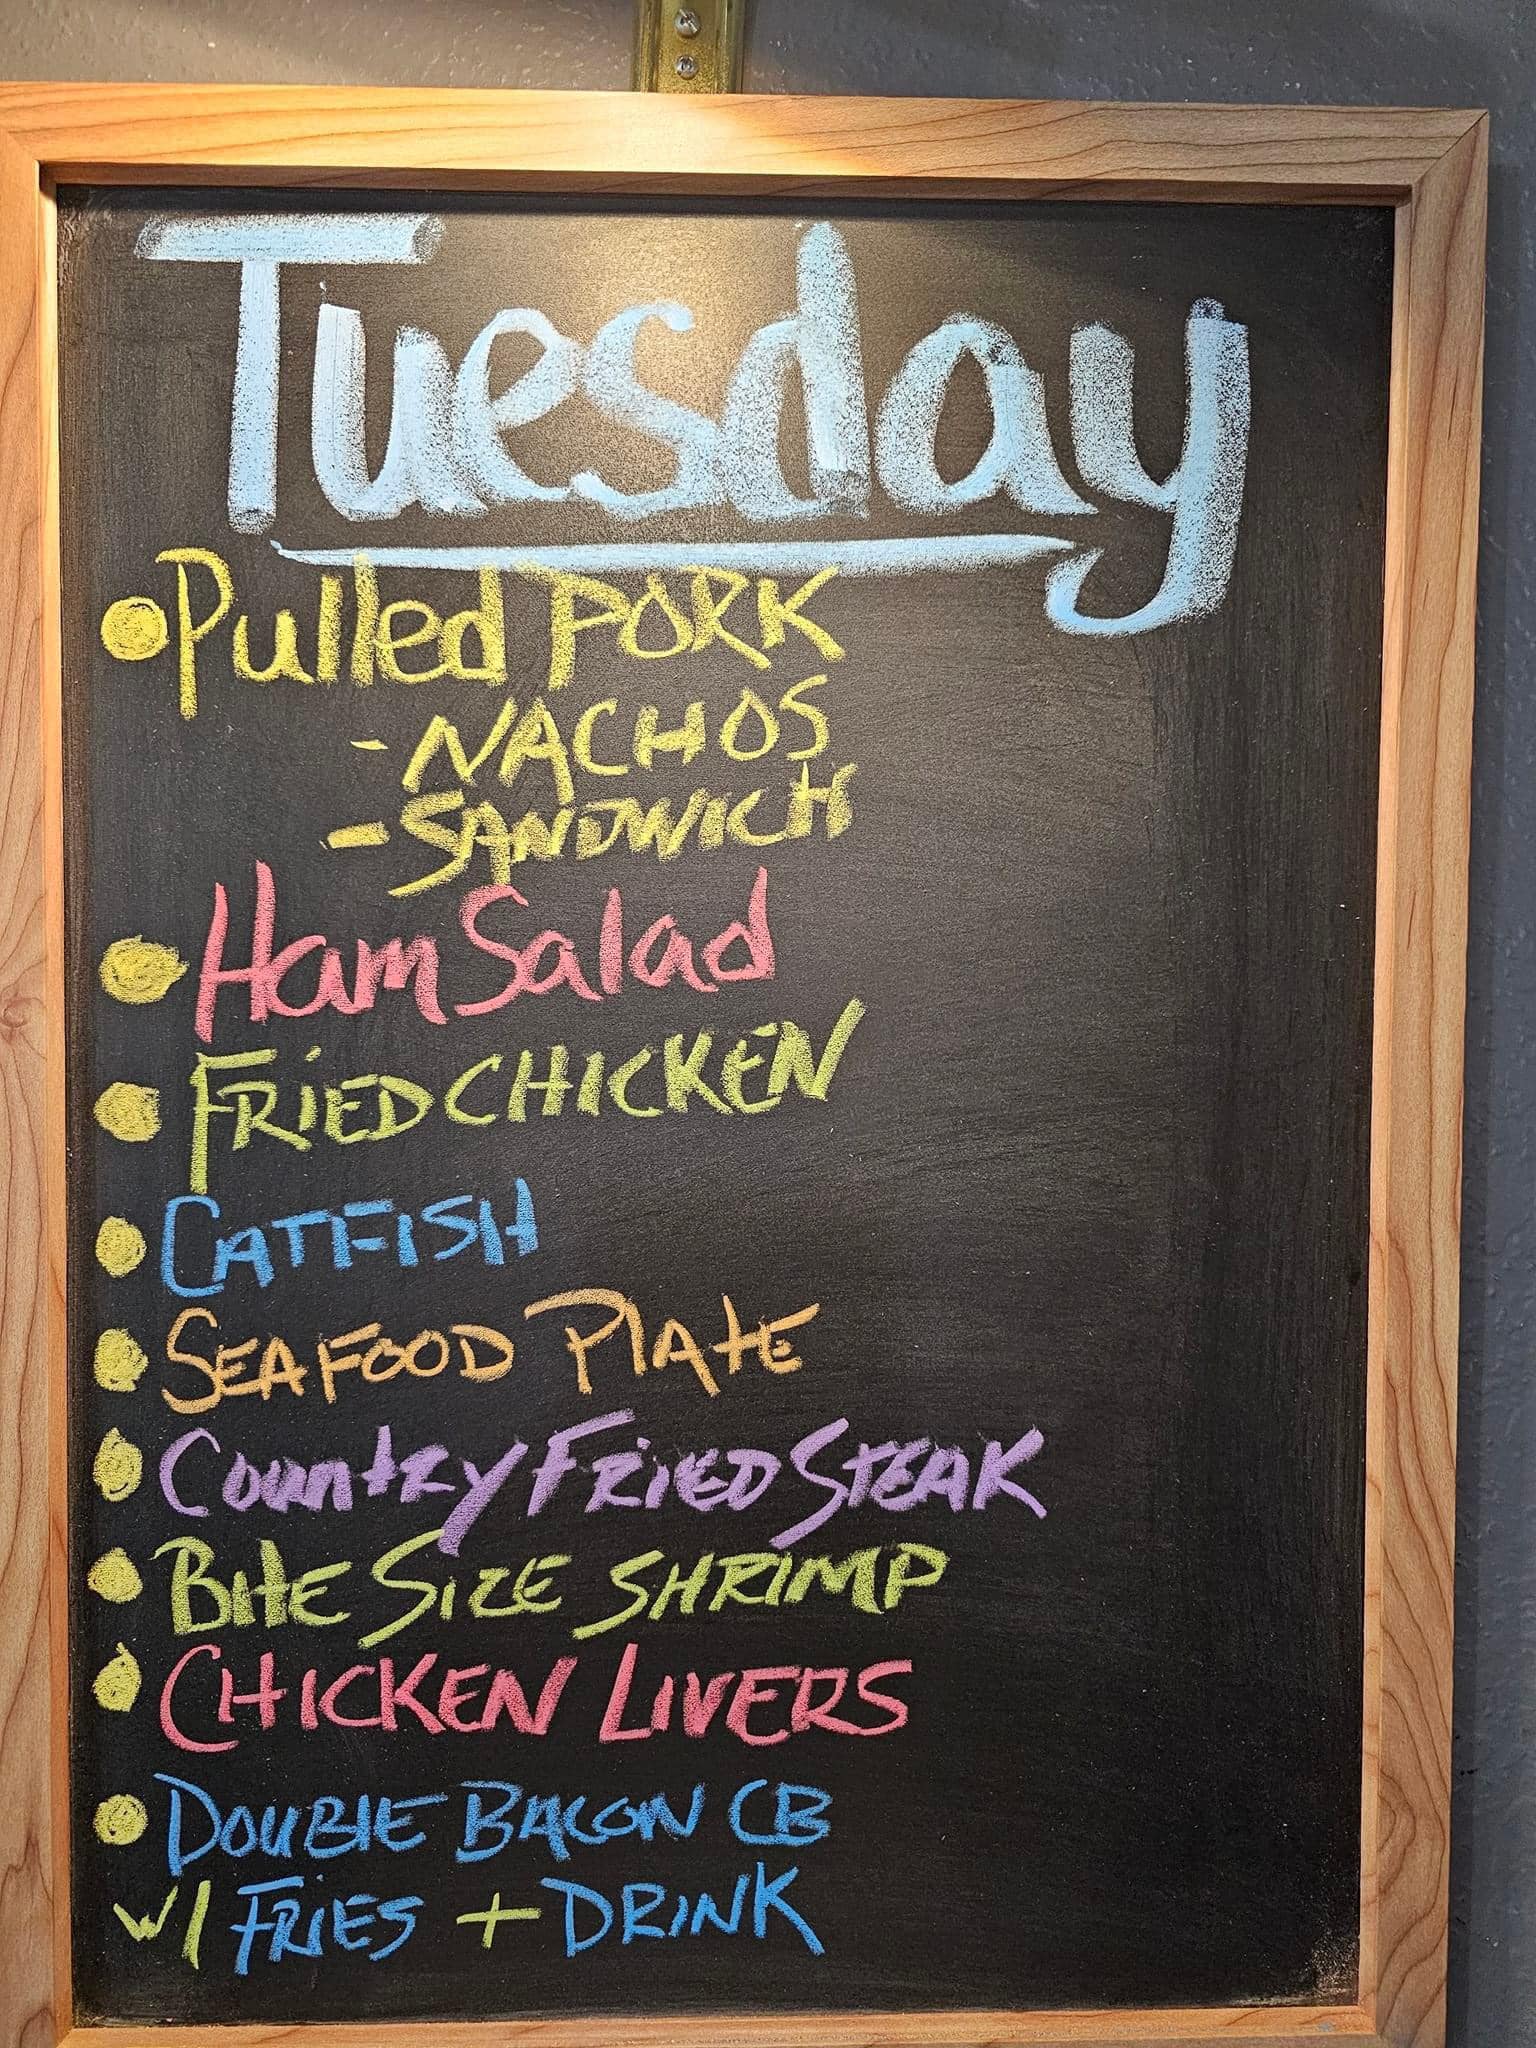 Tuesday
• Pulled PORK
- NACHOS
- SANDWICH
• Ham Salad
• FRiED CHICKEN
• CATFISH
• SEAFOOD PlAtE
• CountRy FRiED STEAK
• BitE SIZE SHRIMP
• CHICKEN LIVERS
• DOUBlE BACON CB
W/ FRIES + DRINK